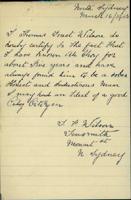 North Sydney
March 16/1903
I Thomas Wilson do
hereby certify to the fact that
I have known
about five years and have
always found him to be a sober
Honest and Industrious man
I may add an Ideal of a good
Citizen
T Wilson
Tinsmith
Mount st
N Sydney